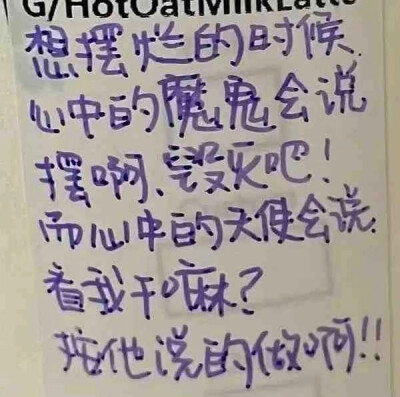 G/HotOatMilkLatte
想摆烂的时候
心中的魔鬼会说
摆啊、毁灭吧！
而心中的天使会说.
看我干嘛？
按他说的做啊!!